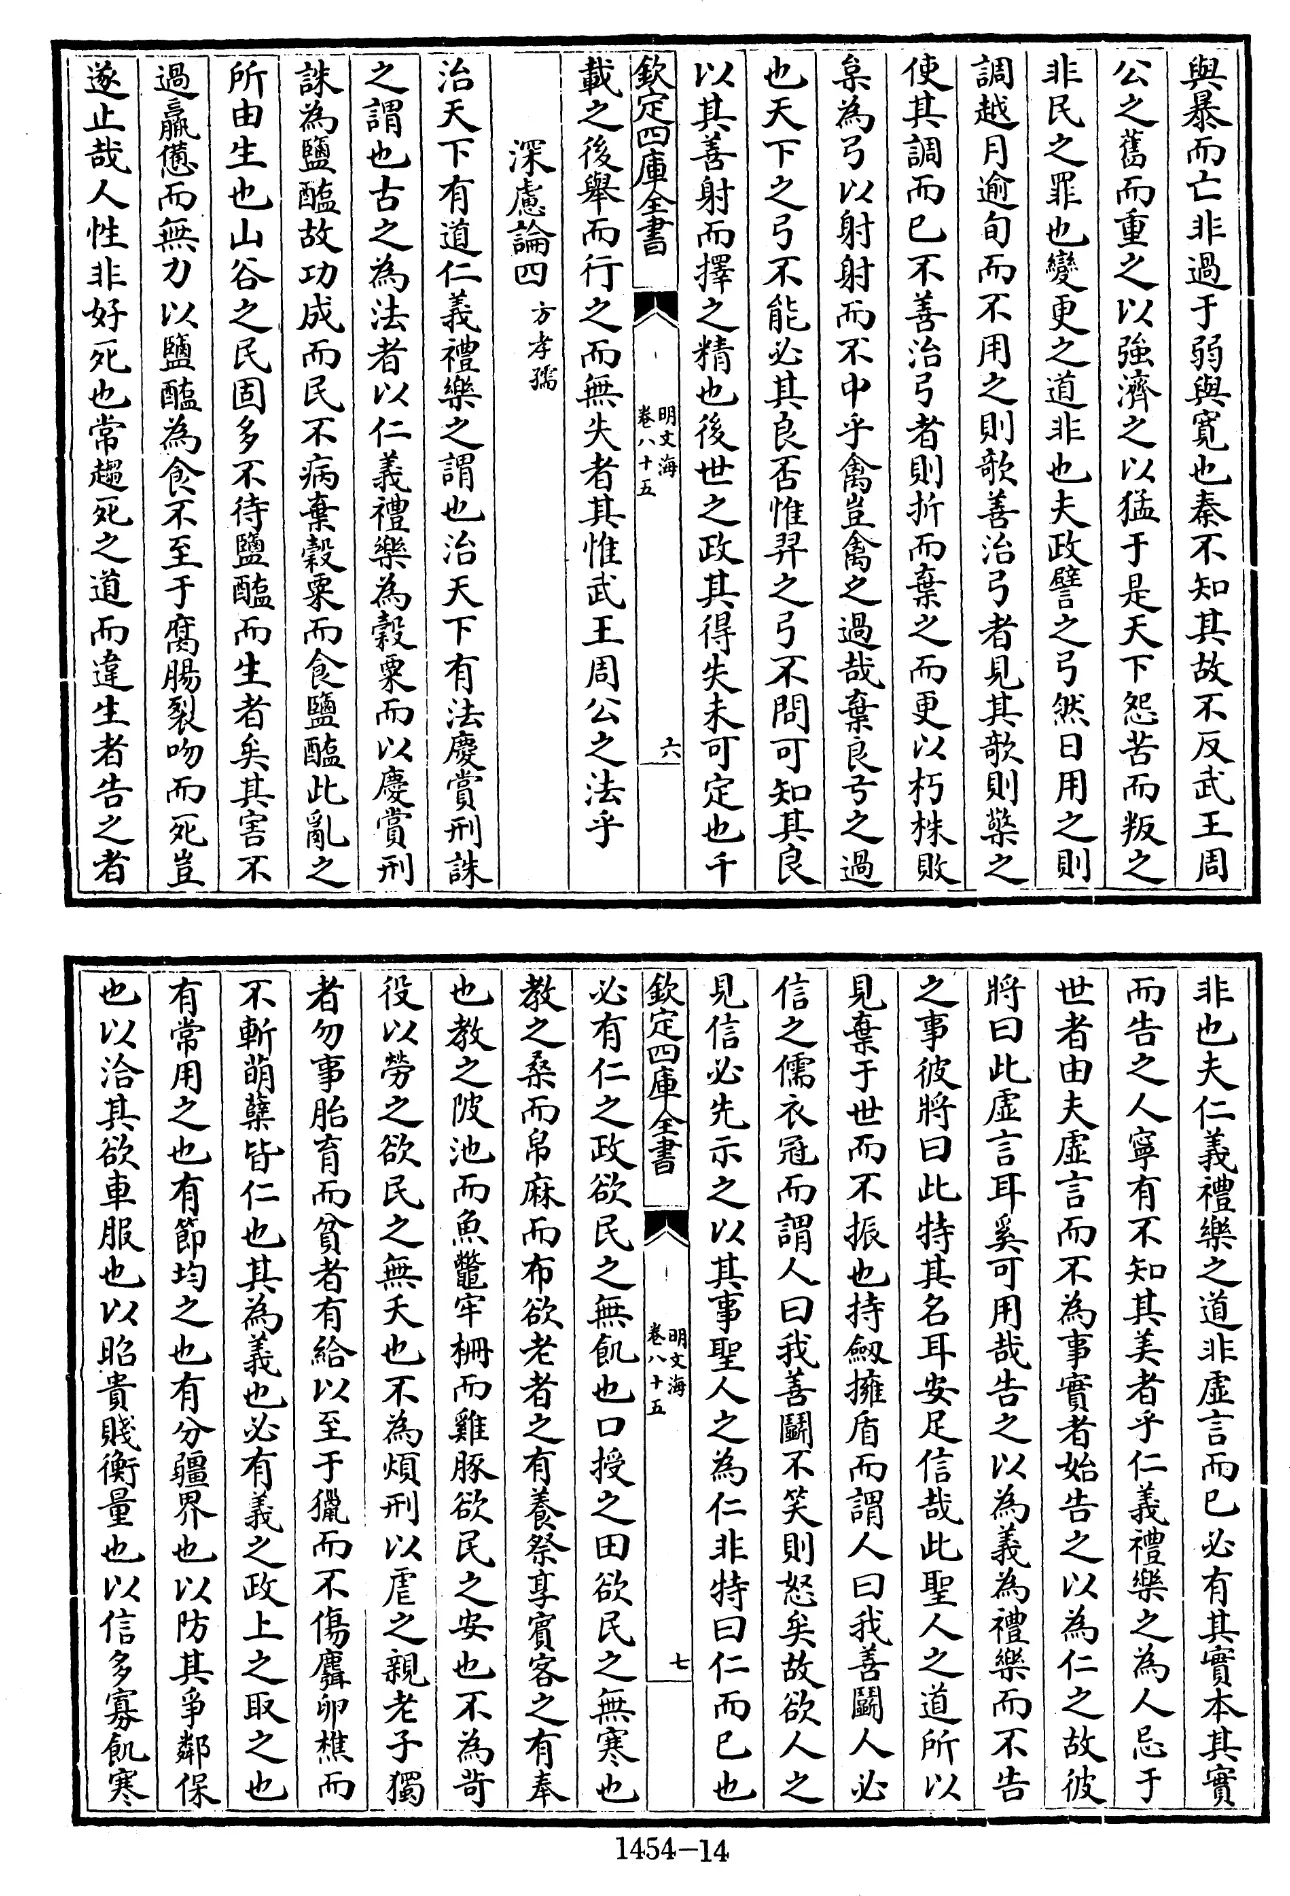 與暴而亡非過于弱與寛也秦不知其故不反武王周
公之舊而重之以強濟之以猛于是天下怨苦而叛之
非民之罪也變更之道非也夫政譬之弓然日用之則
調越月逾旬而不用之則欹善治弓者見其欹則檠之
使其調而已不善治弓者則折而棄之而更以朽株敗
枲為弓以射射而不中乎禽豈禽之過哉棄良弓之過
也天下之弓不能必其良否惟羿之弓不問可知其良
以其善射而擇之精也後世之政其得失未可定也千
欽定四庫全書
明文海
卷八十五
六
載之後舉而行之而無失者其惟武王周公之法乎
深慮論四 方孝孺
治天下有道仁義禮樂之謂也治天下有法慶賞刑誅
之謂也古之為法者以仁義禮樂為穀粟而以慶賞刑
誅為鹽醢故功成而民不病棄穀粟而食鹽醢此亂之
所由生也山谷之民固多不待鹽醢而生者矣其害不
過羸憊而無力以鹽醢為食不至于腐腸裂吻而死豈
遂止哉人性非好死也常趨死之道而違生者告之者
非也夫仁義禮樂之道非虛言而已必有其實本其實
而告之人寧有不知其美者乎仁義禮樂之為人忌于
世者由夫虛言而不為事實者始告之以為仁之故彼
將曰此虛言耳奚可用哉告之以為義為禮樂而不告
之事彼將曰此特其名耳安足信哉此聖人之道所以
見棄于世而不振也持劔擁盾而謂人曰我善鬭人必
信之儒衣冠而謂人曰我善鬭不笑則怒矣故欲人之
見信必先示之以其事聖人之為仁非特曰仁而已也
欽定四庫全書
明文海
卷八十五
七
必有仁之政欲民之無飢也口授之田欲民之無寒也
教之桑而帛麻而布欲老者之有養祭享賓客之有奉
也教之陂池而魚鼈牢柵而雞豚欲民之安也不為苛
役以勞之欲民之無夭也不為煩刑以虐之親老子獨
者勿事胎育而貧者有給以至于獵而不傷麛卵樵而
不斬萌蘖皆仁也其為義也必有義之政上之取之也
有常用之也有節均之也有分疆界也以防其爭鄰保
也以洽其欲車服也以昭貴賤衡量也以信多寡飢寒
1454-14